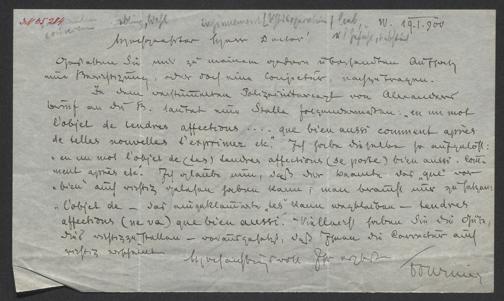 W. 19.1.900
Hochgeehrter Herr Doctor!
Gestatten Sie mir zu meinem gestern übersandten Aufsatz
eine Berichtigung, oder doch eine Conjectur, nachzutragen.
In dem von Alexanders
Brief an die B. lautet eine Stelle folgendermaßen: „en un mot
l'objet de tendres affections .... que bien aussi comment après
de telles nouvelles s'exprimer etc." Ich habe dieselbe so aufgelöst:
„en un mot l'objet de (tes) tendres affections (se porte) bien aussi. Com-
ment après etc. Ich glaube nun, daß der das „que" vor
„bien" auf richtig gelesen haben kann; man braucht nur zu setzen:
„L'objet de – das eingeklammerte „tes" kann wegbleiben – tendres
affections (ne va) que bien aussi." Vielleicht haben Sie die Güte,
dies richtigzustellen – vorausgesetzt, daß Ihnen die Correctur auch
richtig erscheint.
Hochachtungsvoll Ihr ergebener
Fournier